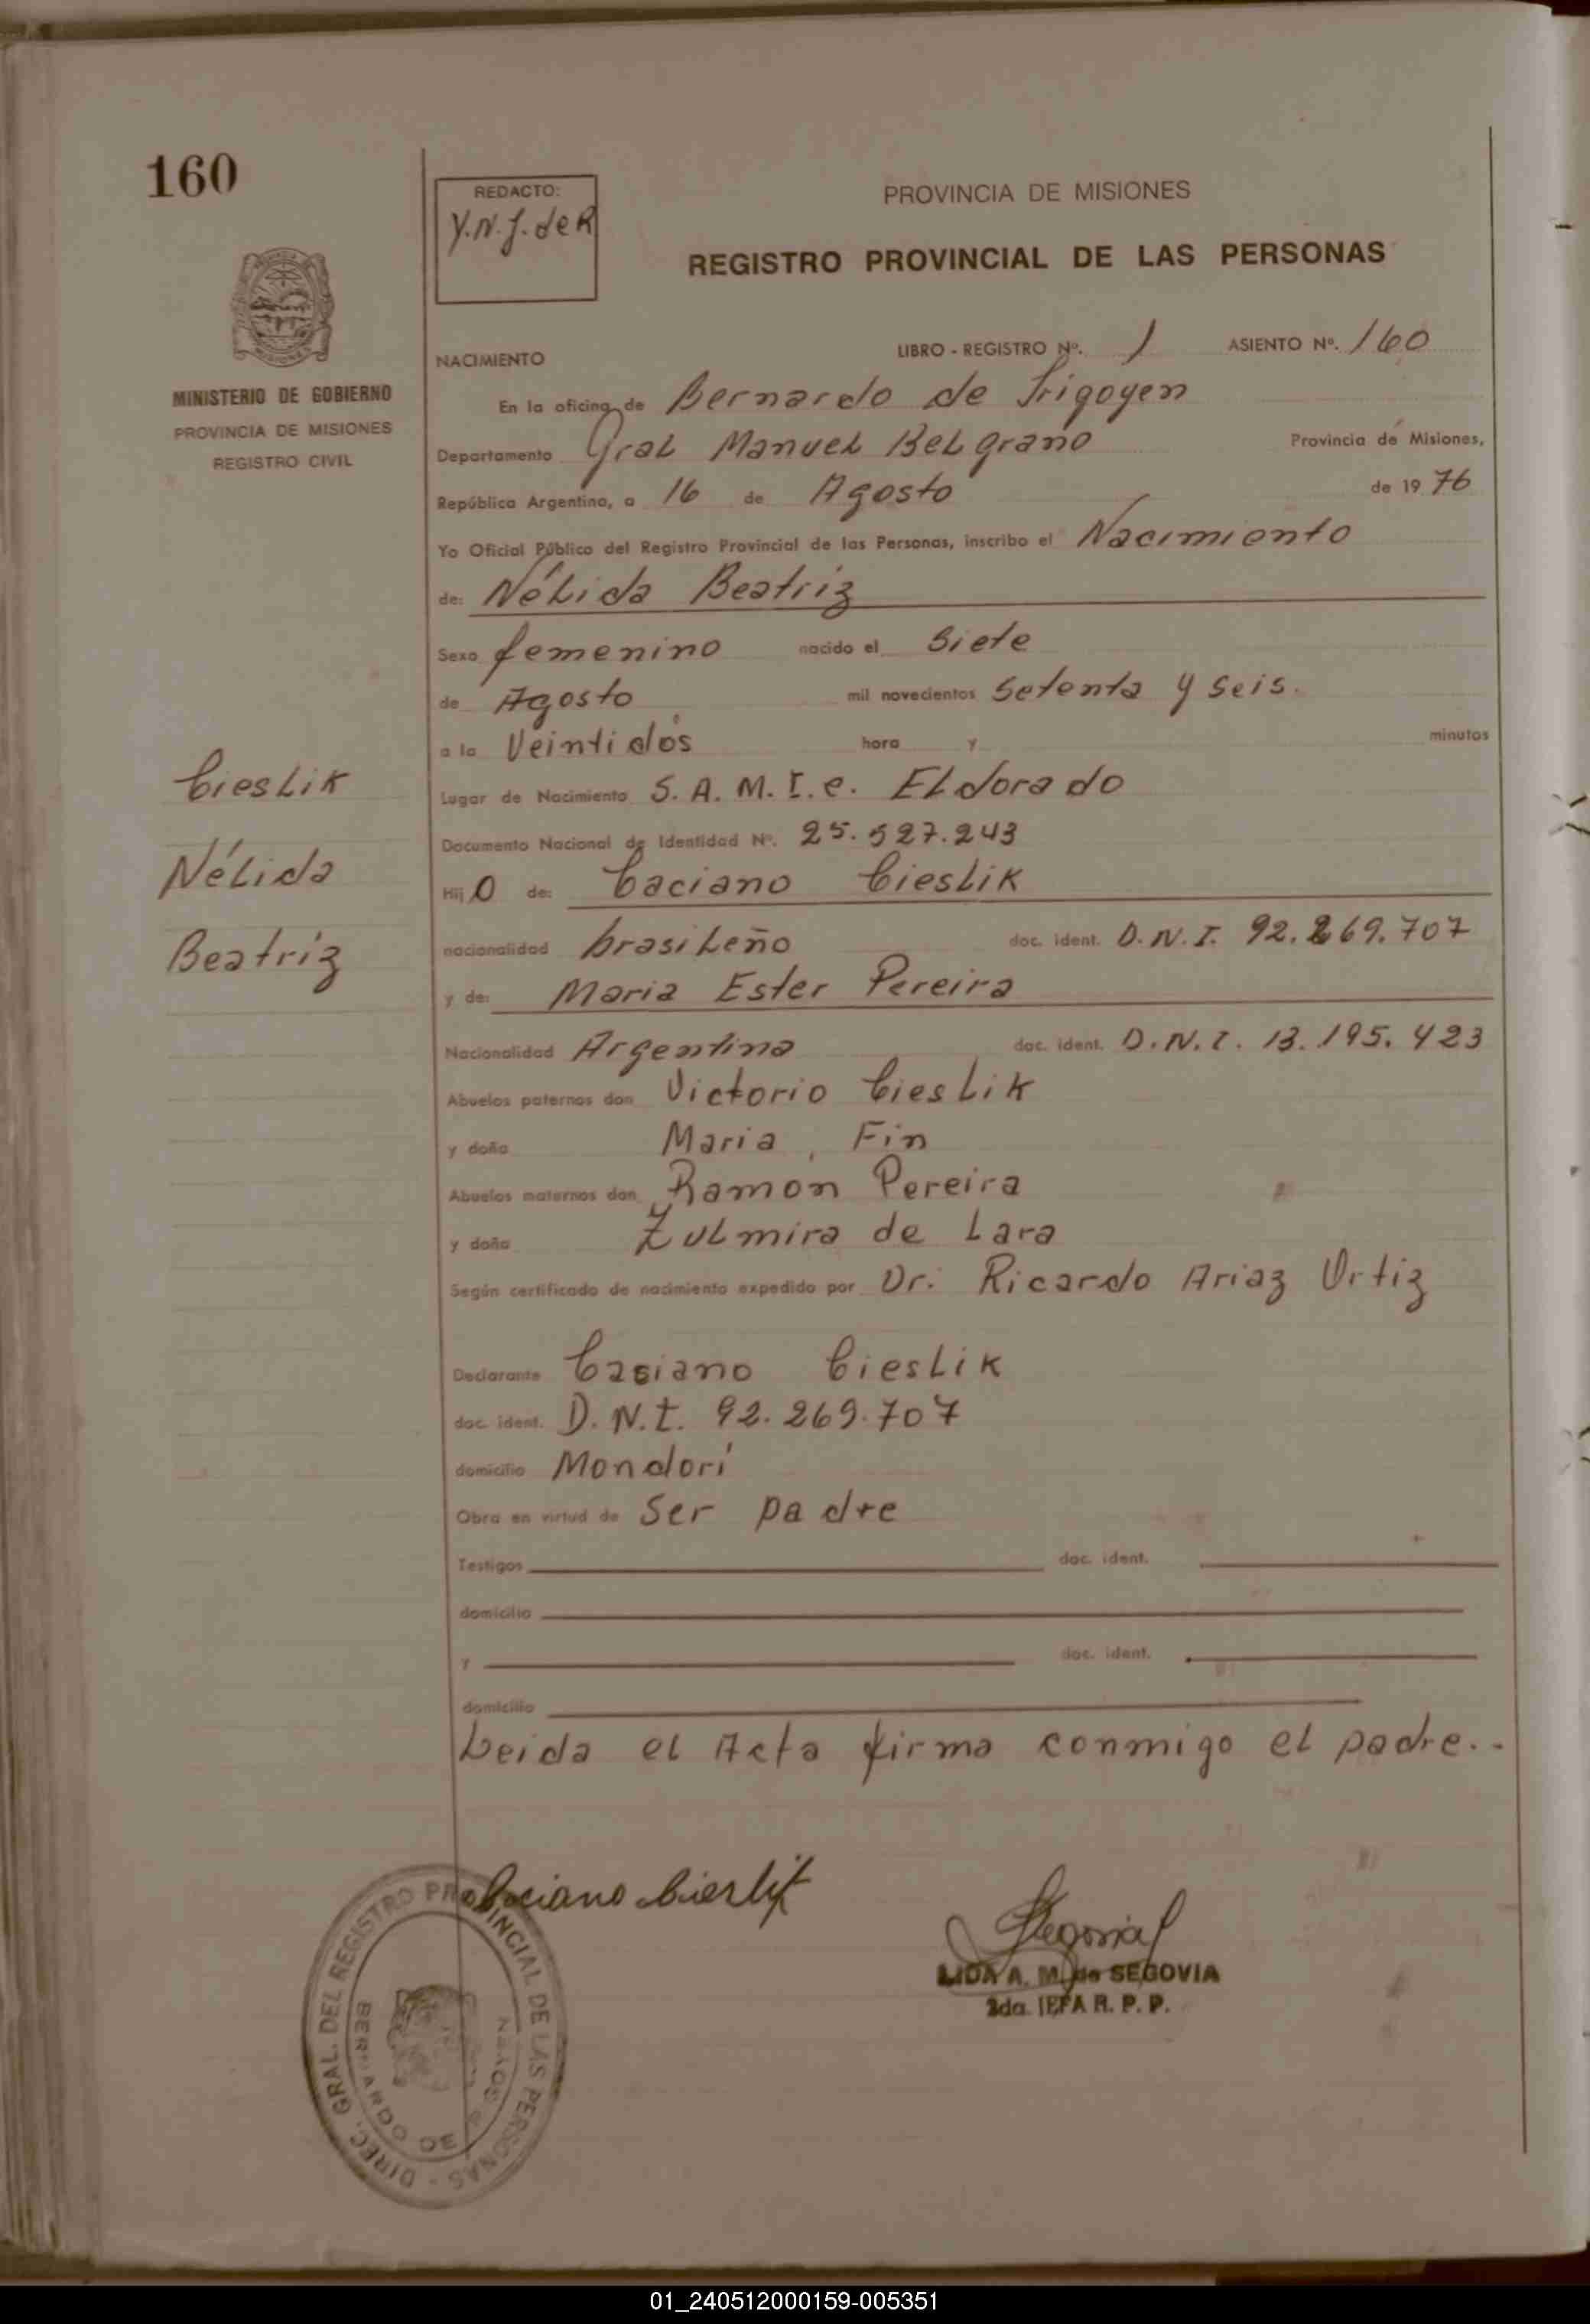 160
REDACTO:
Y.N.J. de R
PROVINCIA DE MISIONES
REGISTRO PROVINCIAL DE LAS PERSONAS
MINISTERIO DE GOBIERNO
PROVINCIA DE MISIONES
REGISTRO CIVIL
NACIMIENTO LIBRO - REGISTRO Nº. 1 ASIENTO Nº. 160
En la oficina de Bernardo de Irigoyen
Departamento Gral Manuel Belgrano Provincia de Misiones,
República Argentina, a 16 de Agosto de 1976
Yo Oficial Público del Registro Provincial de las Personas, inscribo el Nacimiento
de: Nélida Beatriz
Sexo femenino nacido el Siete
de Agosto mil novecientos Setenta y Seis.
a la Veintidós hora y minutos
Lugar de Nacimiento S. A. M. I. c. Eldorado
Documento Nacional de Identidad Nº. 25.527.243
Hijo de: Caciano Cieslik
nacionalidad brasileño doc. ident. D.N.I. 92.269.707
y de: Maria Ester Pereira
Nacionalidad Argentina doc. ident. D.N.I. 13.195.423
Abuelos paternos don Victorio Cieslik
y doña Maria, Fin
Abuelos maternos don Ramon Pereira
y doña Zulmira de Lara
Según certificado de nacimiento expedido por Dr. Ricardo Ariaz Ortiz
Declarante Casiano Cieslik
doc. ident. D.N.I. 92.269.707
domicilio Mondorí
Obra en virtud de Ser padre
Testigos doc. ident.
domicilio
y doc. ident.
domicilio
Leida el Acta firma conmigo el padre..
Cieslik
Nélida
Beatriz
Caciano Cieslik
Segovia
LIDA A. M. de SEGOVIA
2da. JEFA R. P. P.
DIREC. GRAL. DEL REGISTRO PROVINCIAL DE LAS PERSONAS -
BERNARDO DE IRIGOYEN
01_240512000159-005351